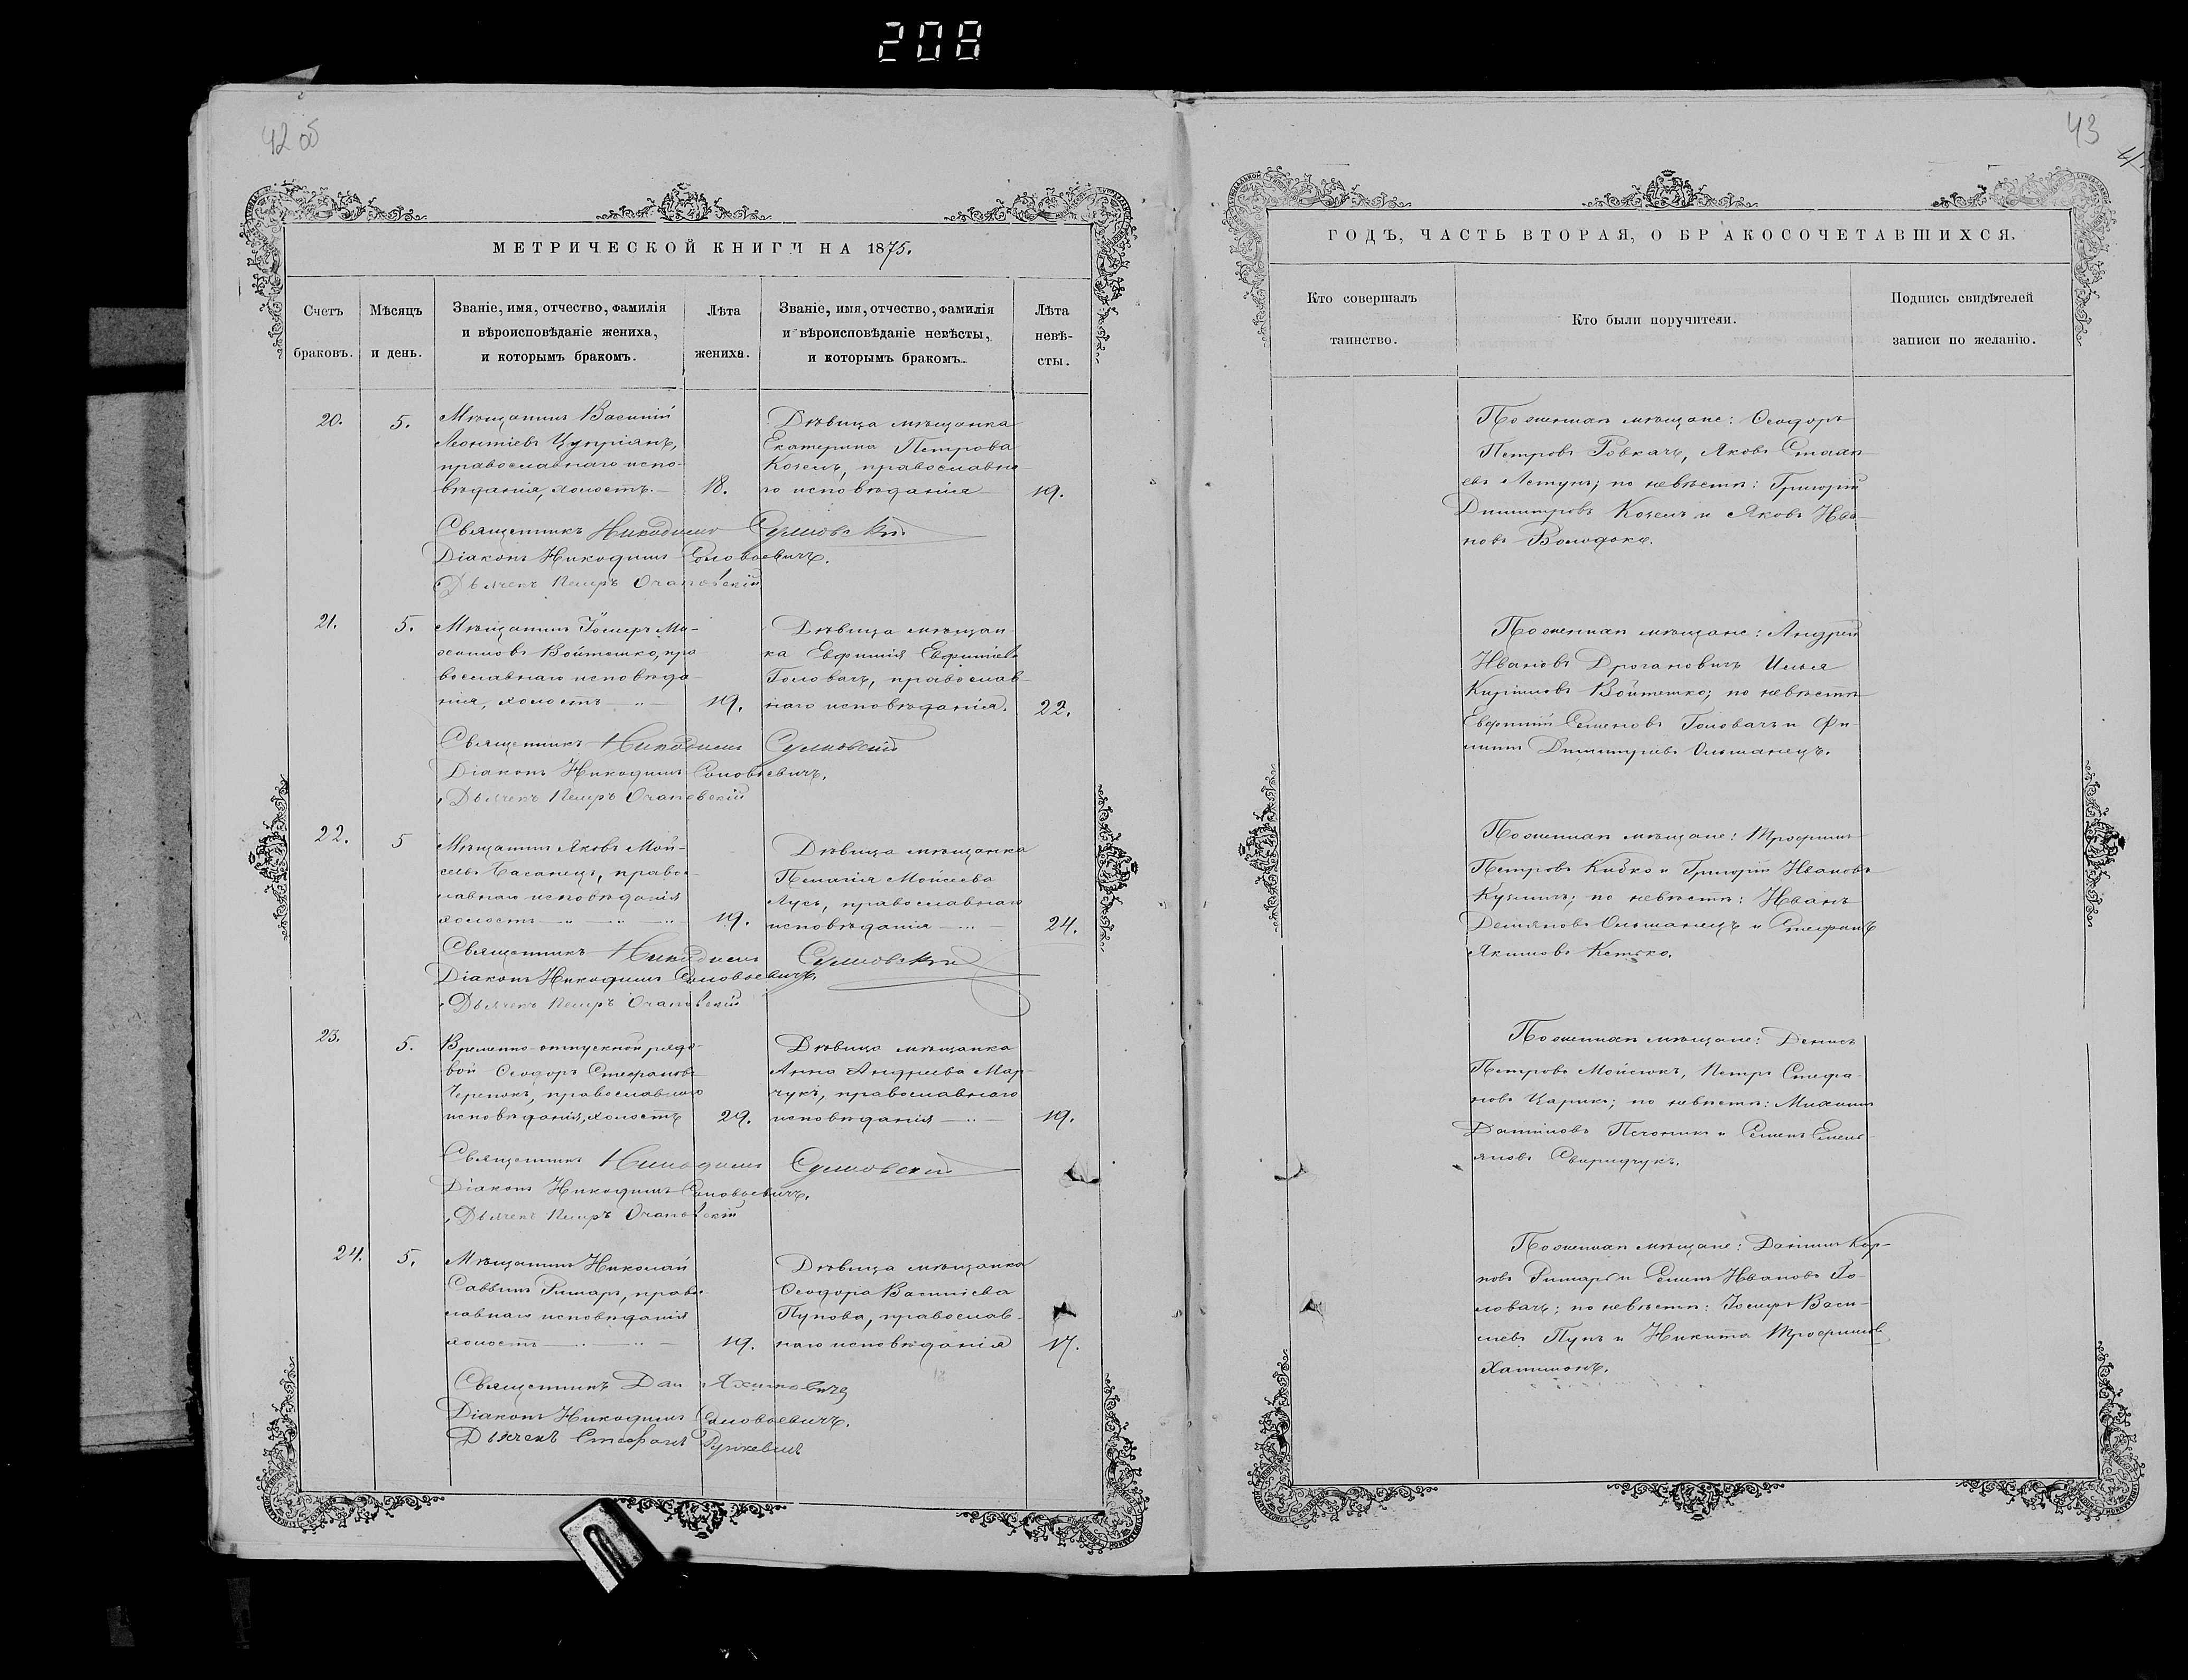 208
42 об
МЕТРИЧЕСКОЙ КНИГИ НА 1875.
Счетъ браковъ.
Мѣсяцъ и день.
Званіе, имя, отчество, фамилія
и вѣроисповѣданіе жениха,
и которымъ бракомъ.
Лѣта жениха.
Званіе, имя, отчество, фамилія
и вѣроисповѣданіе невѣсты,
и которымъ бракомъ.
Лѣта невѣ-
сты.
20.
5.
Мѣщанинъ Василій
Леонтіевъ Цупріянъ,
православнаго испо-
вѣданія, холостъ.
18.
Дѣвица мѣщанка
Екатерина Петрова
Козелъ, православна
го исповѣданія
19.
Священникъ Никодимъ
Діаконъ Никодимъ Соловьевичъ.
Дьячекъ Петръ Очаповскій
21.
5.
Мѣщанинъ Іосифъ Ми-
хаиловъ Войтешко, пра
вославнаго исповѣда-
нія, холостъ
19.
Дѣвица мѣщан-
ка Евфимія Евфиміева
Головачъ, православ
наго исповѣданія.
22.
Священникъ Никодимъ
Діаконъ Никодимъ Соловьевичъ.
Дьячекъ Петръ Очаповскій
22.
5
Мѣщанинъ Яковъ Мой-
сеевъ Басанецъ, право-
славнаго исповѣданія
холостъ
19.
Дѣвица мѣщанка
Пелагія Мойсеева
Лусь, православнаго
исповѣданія
24.
Священникъ Никодимъ
Діаконъ Никодимъ Соловьевичъ.
Дьячекъ Петръ Очаповскій
23.
5.
Временно-отпускной рядо-
вой Ѳеодоръ Стефановъ
Черепокъ, православнаго
исповѣданія, холостъ
29.
Дѣвица мѣщанка
Анна Андреева Мар-
чукъ, православнаго
исповѣданія
19.
Священникъ Никодимъ
Діаконъ Никодимъ Соловьевичъ.
Дьячекъ Петръ Очаповскій
24.
5.
Мѣщанинъ Николай
Саввинъ Римаръ, право-
славнаго исповѣданія
холостъ
19.
Дѣвица мѣщанка
Ѳеодора Василіева
Пупова, православ-
наго исповѣданія
17.
Священникъ
Діаконъ Никодимъ Соловьевичъ.
Дьячекъ Стефанъ
43
ГОДЪ, ЧАСТЬ ВТОРАЯ, О БРАКОСОЧЕТАВШИХСЯ.
Кто совершалъ
таинство.
Кто были поручители.
Подпись свидѣтелей
записи по желанію.
По женихѣ мѣщане: Ѳеодоръ
Петровъ Ровкачъ, Яковъ
евъ по невѣстѣ: Григорій
Димитровъ Козелъ и Яковъ Ива-
новъ Володько.
По женихѣ мѣщане: Андрей
Ивановъ Дрогановичъ Илья
Кириловъ Войтешко; по невѣстѣ
Евфимій Семеновъ Головачъ и Фи-
липъ Димитріевъ Ольшанецъ.
По женихѣ мѣщане: Трофимъ
Петровъ Кибко и Григорій Ивановъ
Кузмичъ; по невѣстѣ: Иванъ
Демяновъ Ольшанецъ и Стефанъ
Якимовъ Кетько.
По женихѣ мѣщане: Денисъ
Петровъ Мойсюкъ, Петръ Стефа-
новъ Царикъ; по невѣстѣ: Михаилъ
Даниловъ и Семенъ Емель-
яновъ Свиридчукъ.
По женихѣ мѣщане: Даніилъ Кар-
повъ Римаръ и Семенъ Ивановъ Го-
ловачъ; по невѣстѣ: Іосифъ Васи-
лиевъ Пупъ и Никита Трофимовъ